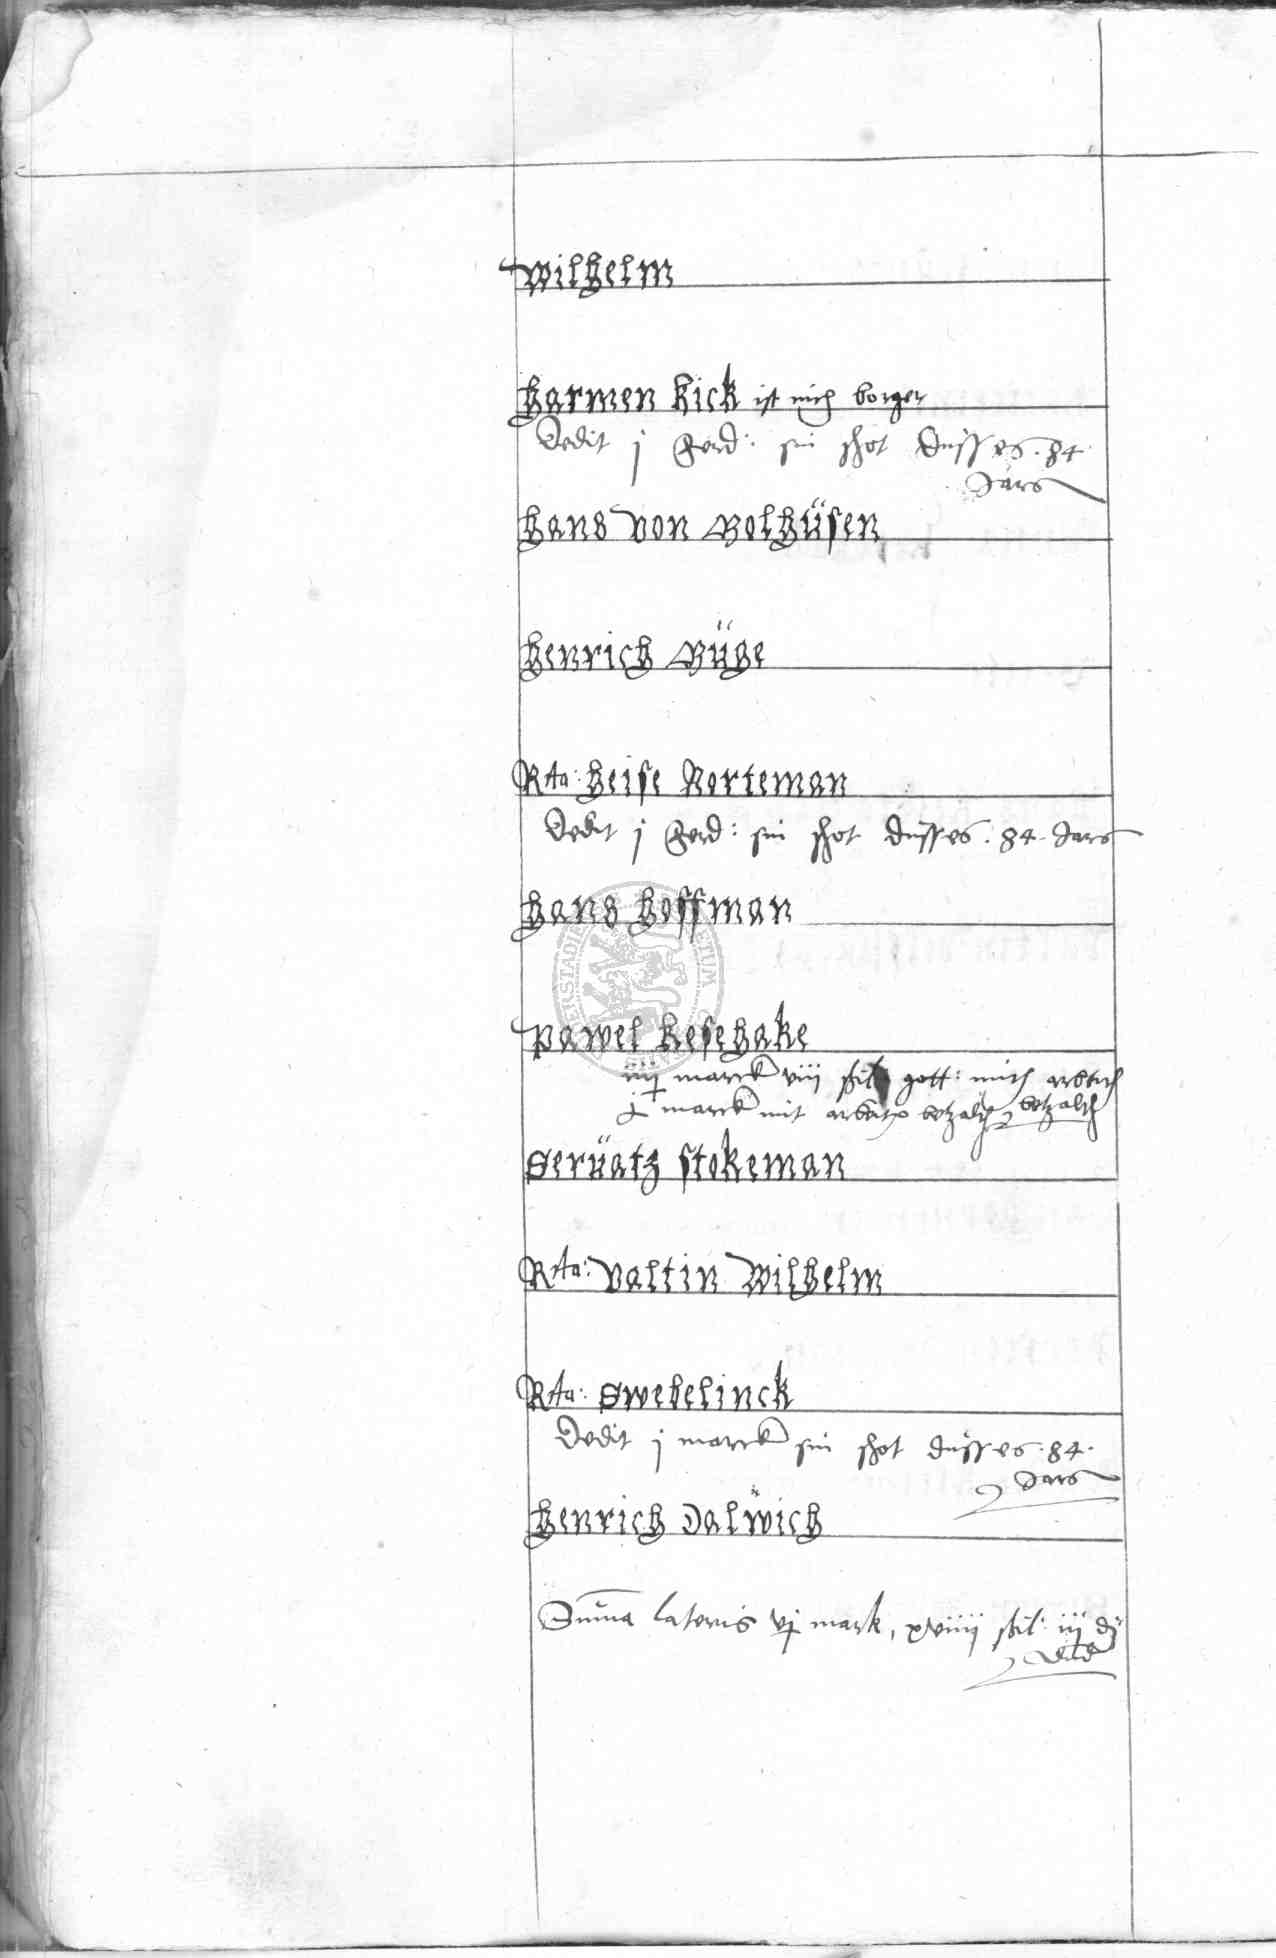 Wilhelm
Harmen Kick ist nich borger
Dedit j ferd: sin schot dusses 84
Jars
Hans von Bolhüsen
Henrich Büge
Rta: Heise Korteman
Dedit j ferd: sin schot dusses 84 Jars
Hans Hoffman
Pawel Kesehake
iiij marck viij ßil gott: mith arbeith
j marck mit arbeit betzalth betzalth
Serüatz Stokeman
Rta: Valtin Wilhelm
Rta: Swebelinck
Dedit j marck sin schot dusses 84
Jars
Henrich Dalwich
Suma lateris vj mark, xviiij ßil: iij d